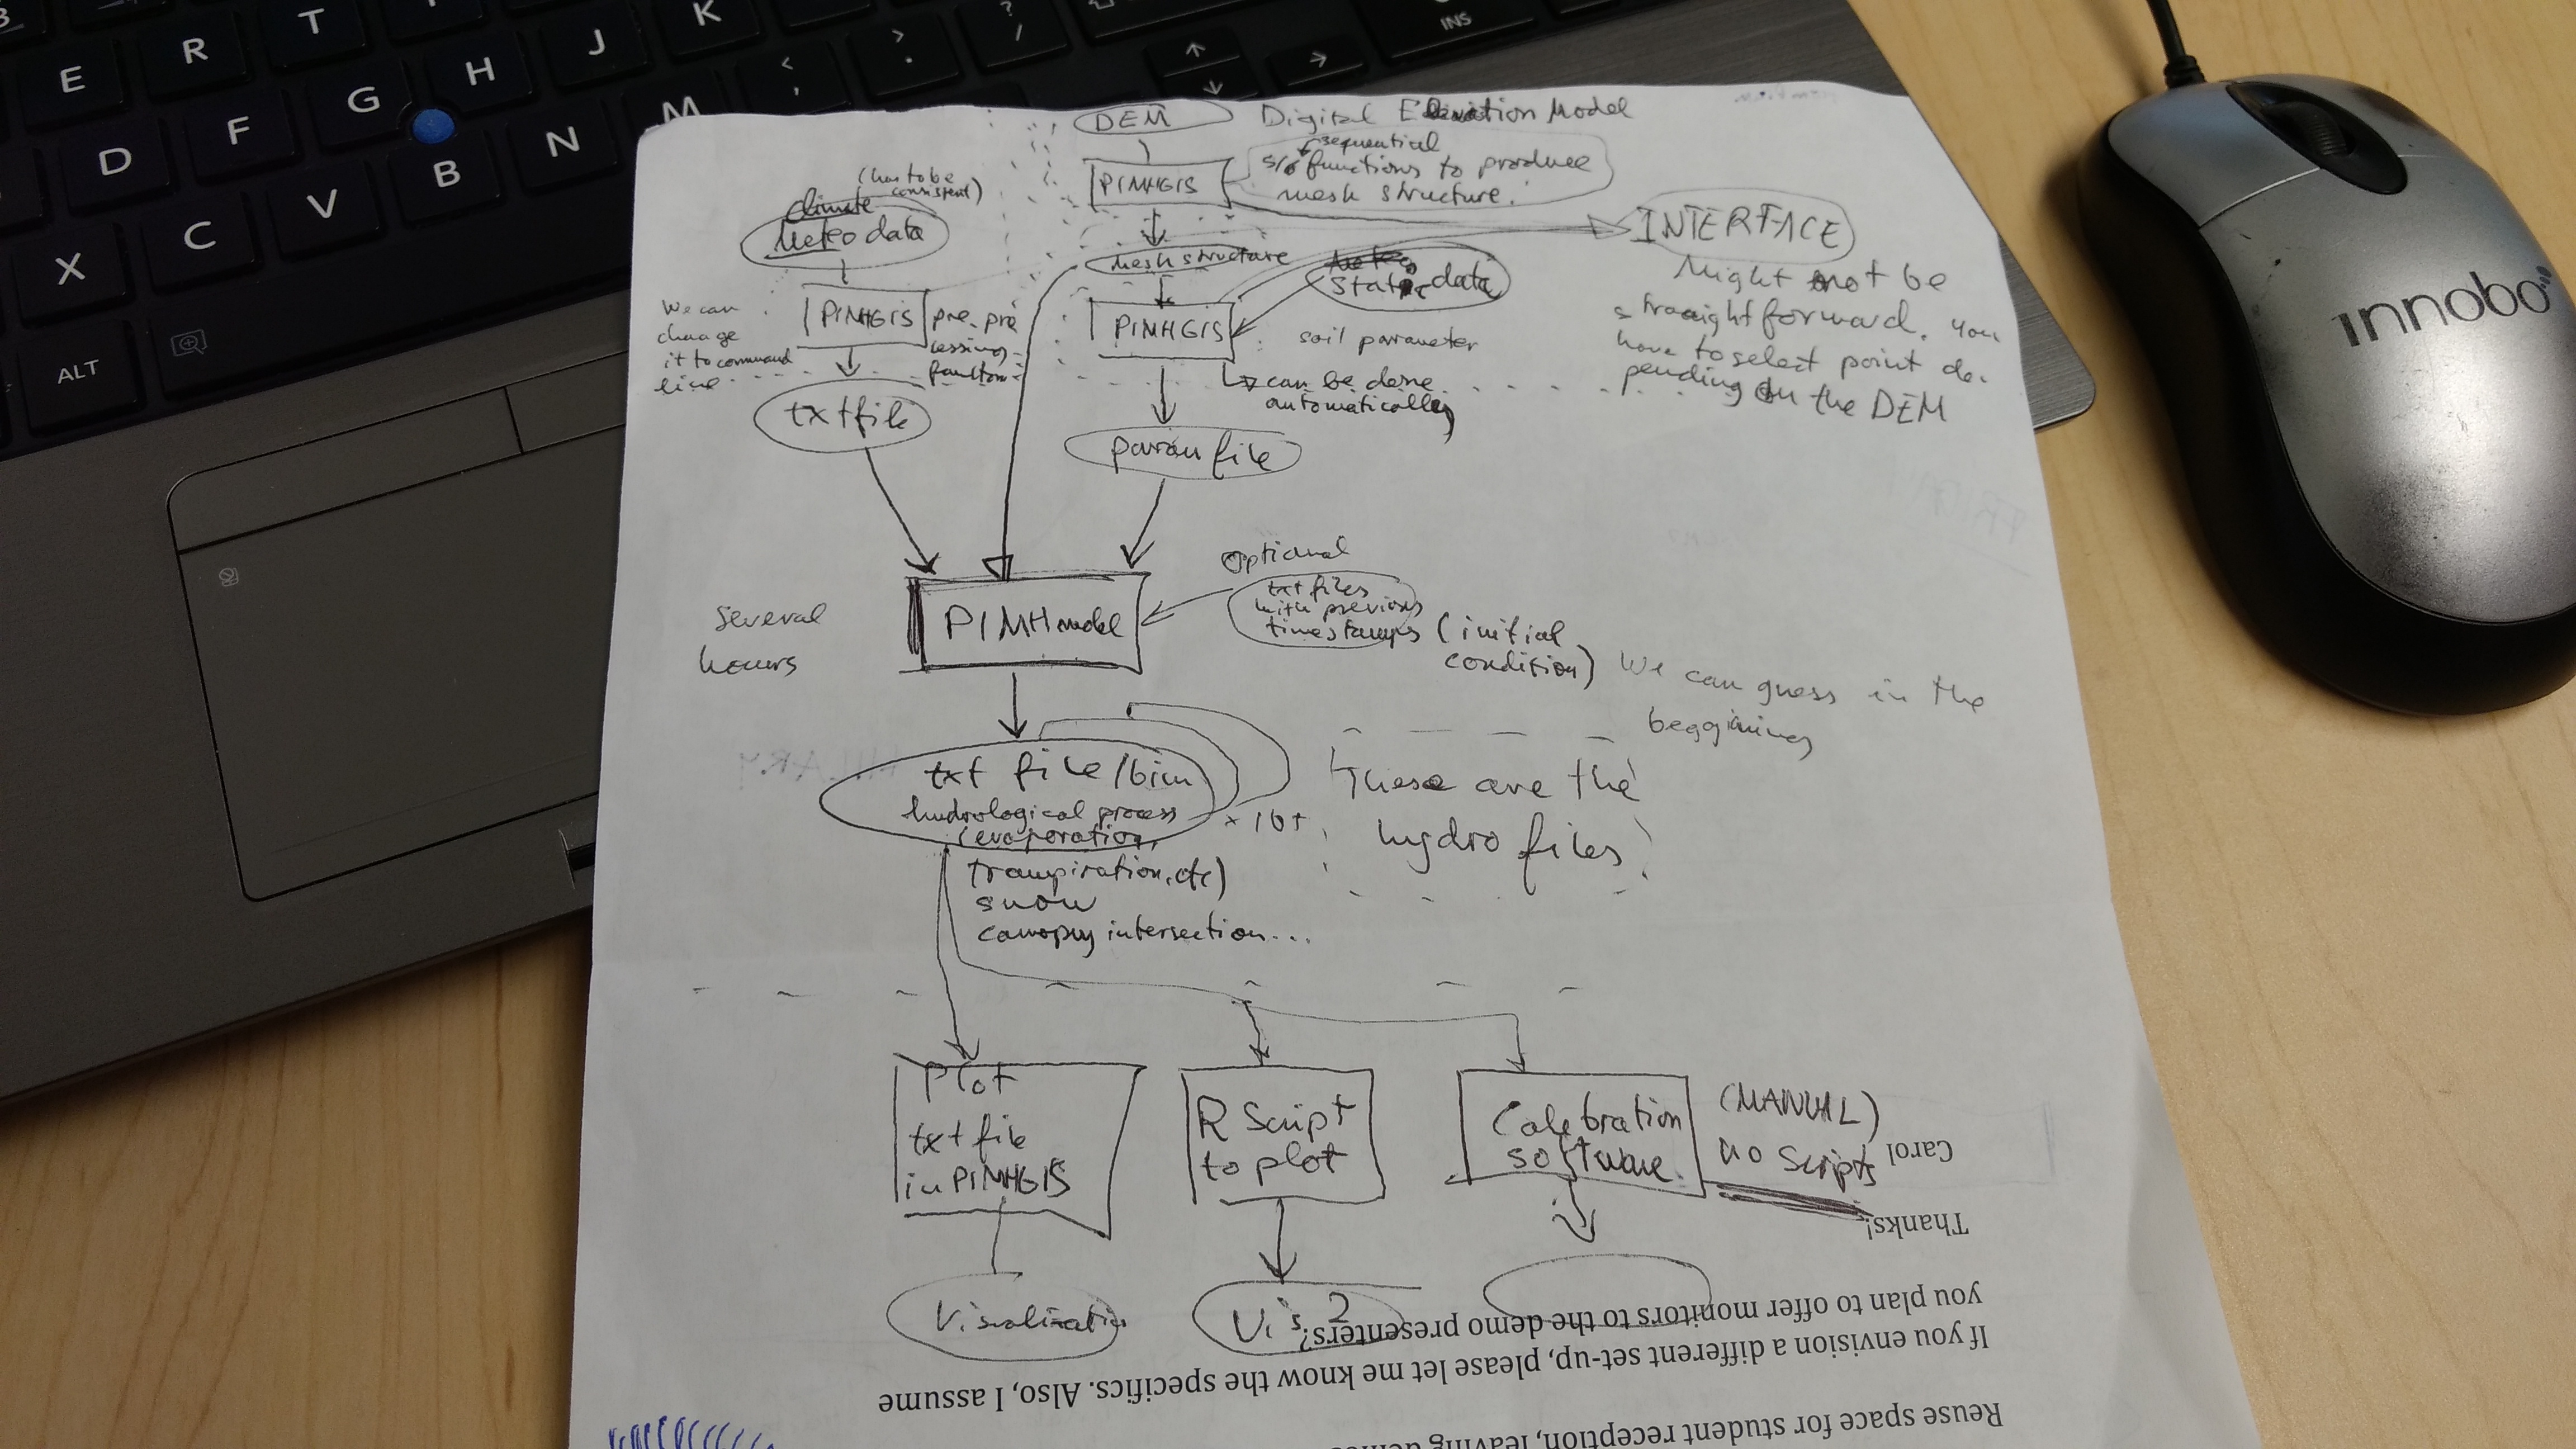 E R T
D F G H J K
X C V B N M
ALT
INS
innobo
DEM Digital Elevation Model
sequential
functions to produce
mesh structure.
PIMHGIS
(has to be
consistent)
climate
Meteo data
INTERFACE
Might not be
straaightforward. You
have to select point de-
pending on the DEM
mesh structure
Static data
We can
change
it to command
line
PIMHGIS
pre-pro
cessing
function
PIMHGIS
soil parameter
can be done
automatically
txt file
param file
Optional
txt files
with previous
timestamps (initial
condition) We can guess in the
beggining
several
hours
PIMH model
txt file/bin
hydrological process
(evaporation,
transpiration, etc)
snow
canopy intersection...
x 16+
These are the
hydro files
Plot
txt file
in PIMHGIS
R Script
to plot
Calebration
software.
(MANUAL)
no scripts
Visualization
Vis 2
Reuse space for student reception, leaving
If you envision a different set-up, please let me know the specifics. Also, I assume
you plan to offer monitors to the demo presenters?
Thanks!
Carol